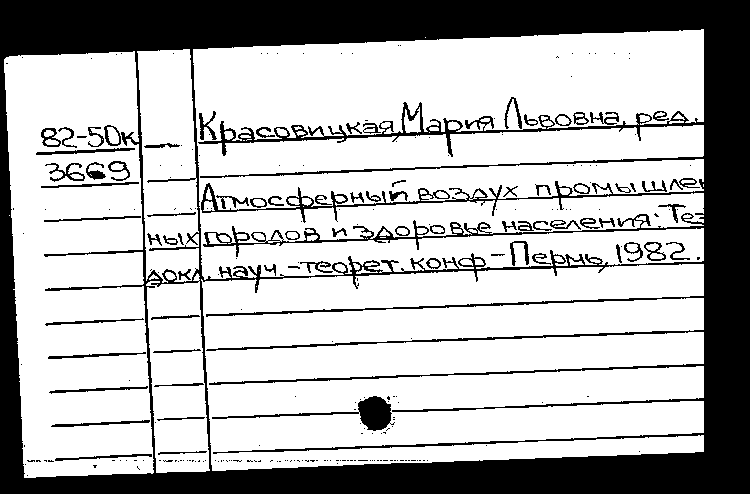 82-50к
3669
Красовицкая, Мария Львовна, ред.
Атмосферный воздух промышлен
ных городов и здоровье населения: Тез
докл. науч.-теорет. конф - Пермь, 1982.